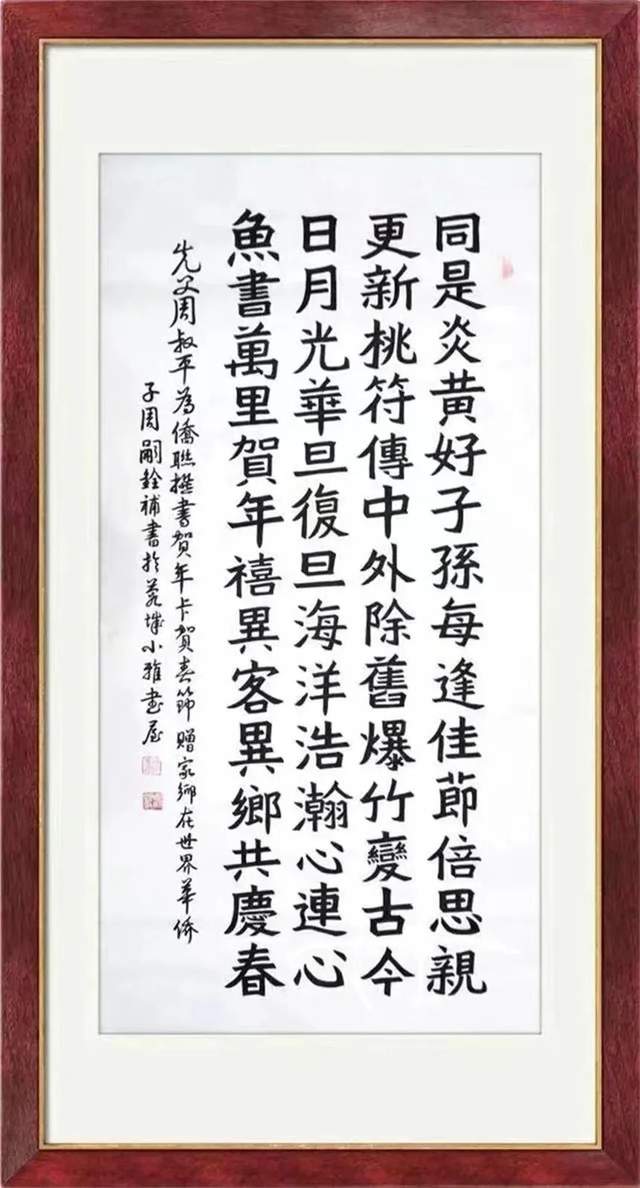 同是炎黄好子孫每逢佳節倍思親
更新桃符傳中外除舊爆竹變古今
日月光華旦復旦海洋浩瀚心連心
魚書萬里賀年禧異客異鄉共慶春
先父周叔平為僑聯撰書賀年卡賀春節贈家鄉在世界華僑
子周嗣銓補書於蓉城小雅畫屋